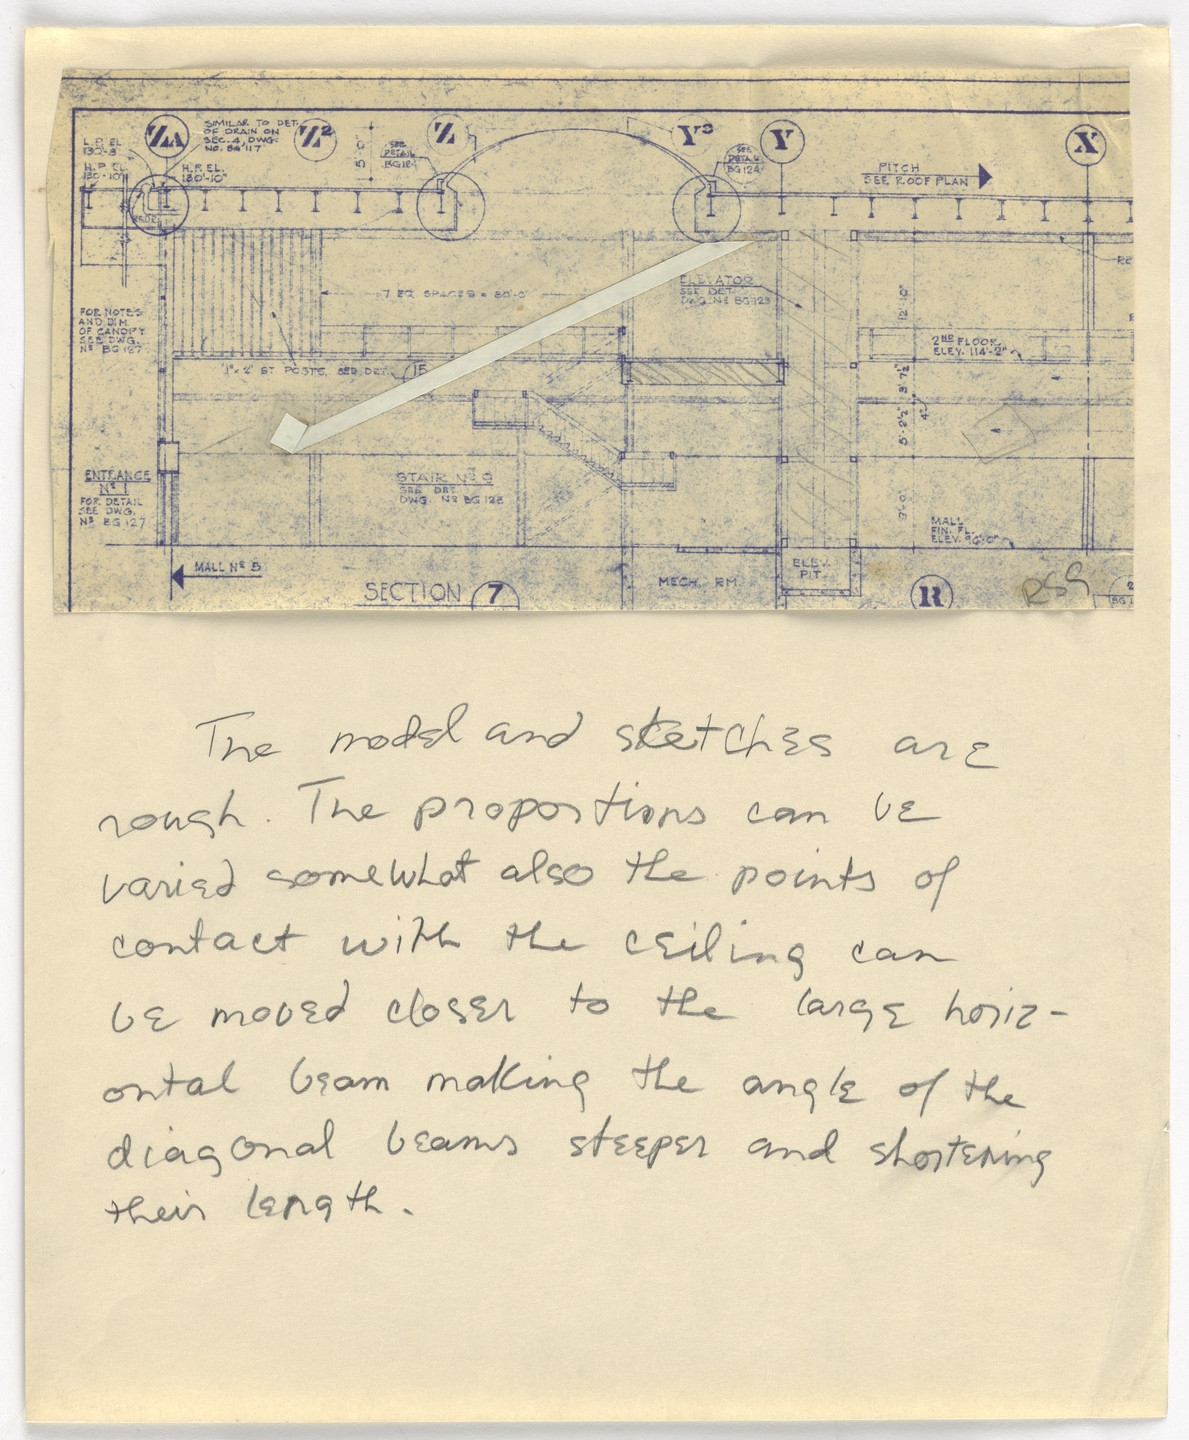 ZA
SIMILAR TO DET.
OF DRAIN ON
SEC. 4, DWG.
NO. BG 117
Z2
5'-0"
SEE
DETAIL
Z
Y3
SEE
DETAIL
BG 124
Y
PITCH
SEE ROOF PLAN
X
L.P. EL.
130'-8"
H.P. EL.
130'-10"
H.P. EL.
130'-10"
7 EQ. SPACES = 30'-0"
ELEVATOR
SEE DET.
DWG. Nº BG 123
12'-10"
FOR NOTES
AND DIM.
OF CANOPY
SEE DWG.
Nº BG 127
2ND FLOOR
ELEV. 114'-2"
1" x 2" ST. POSTS, SEE DET. 15
3'-7½"
5'-2½"
4"
ENTRANCE
Nº 1
FOR DETAIL
SEE DWG.
Nº BG 127
STAIR Nº 9
SEE DET.
DWG. Nº BG 123
9'-0"
MALL
FIN. FL.
ELEV. 96'-0"
MALL Nº 5
MECH. RM.
ELEV.
PIT
SECTION 7
R
The model and sketches are
rough. The proportions can be
varied somewhat also the points of
contact with the ceiling can
be moved closer to the large horiz-
ontal beam making the angle of the
diagonal beams steeper and shortening
their length.